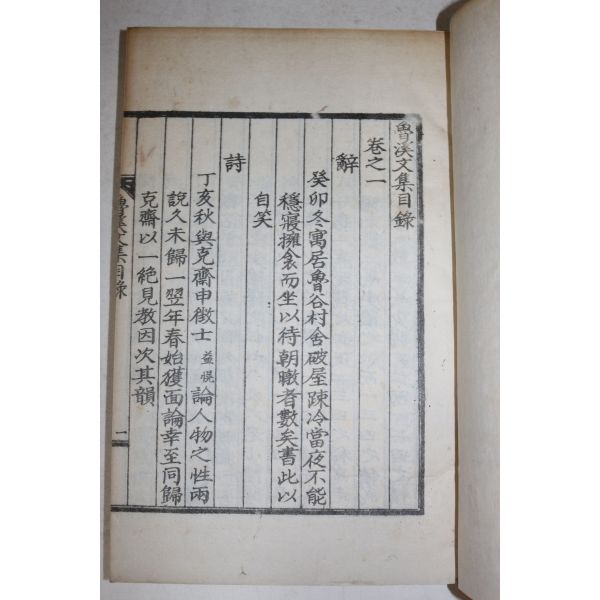 魯溪文集目錄
卷之一
辭
癸卯冬寓居魯谷村舍破屋踈冷當夜不能
穩寢擁衾而坐以待朝暾者數矣書此以
自笑
詩
丁亥秋與克齋申徵士益愰論人物之性兩
說久未歸一翌年春始獲面論幸至同歸
克齋以一絶見敎因次其韻
魯溪文集目錄
一